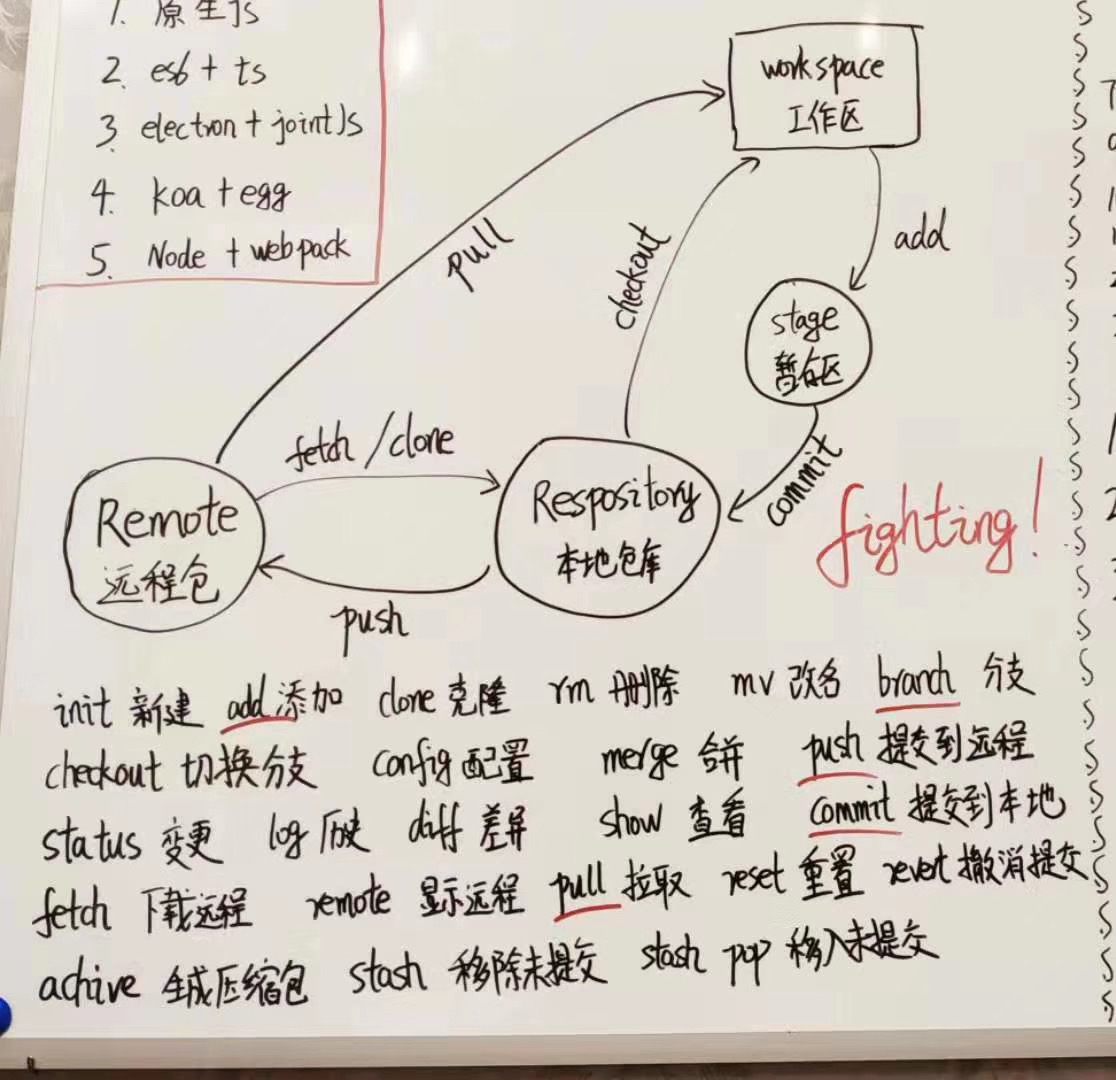 1. 原生js
2. es6 + ts
3. electron + jointJs
4. koa + egg
5. Node + webpack
workspace
工作区
pull
checkout
add
stage
暂存区
fetch / clone
commit
Remote
远程仓
Respository
本地仓库
push
fighting!
init 新建 add 添加 clone 克隆 rm 删除 mv 改名 branch 分支
checkout 切换分支 config 配置 merge 合并 push 提交到远程
status 变更 log 历史 diff 差异 show 查看 commit 提交到本地
fetch 下载远程 remote 显示远程 pull 拉取 reset 重置 revert 撤消提交
achive 生成压缩包 stash 移除未提交 stash pop 移入未提交